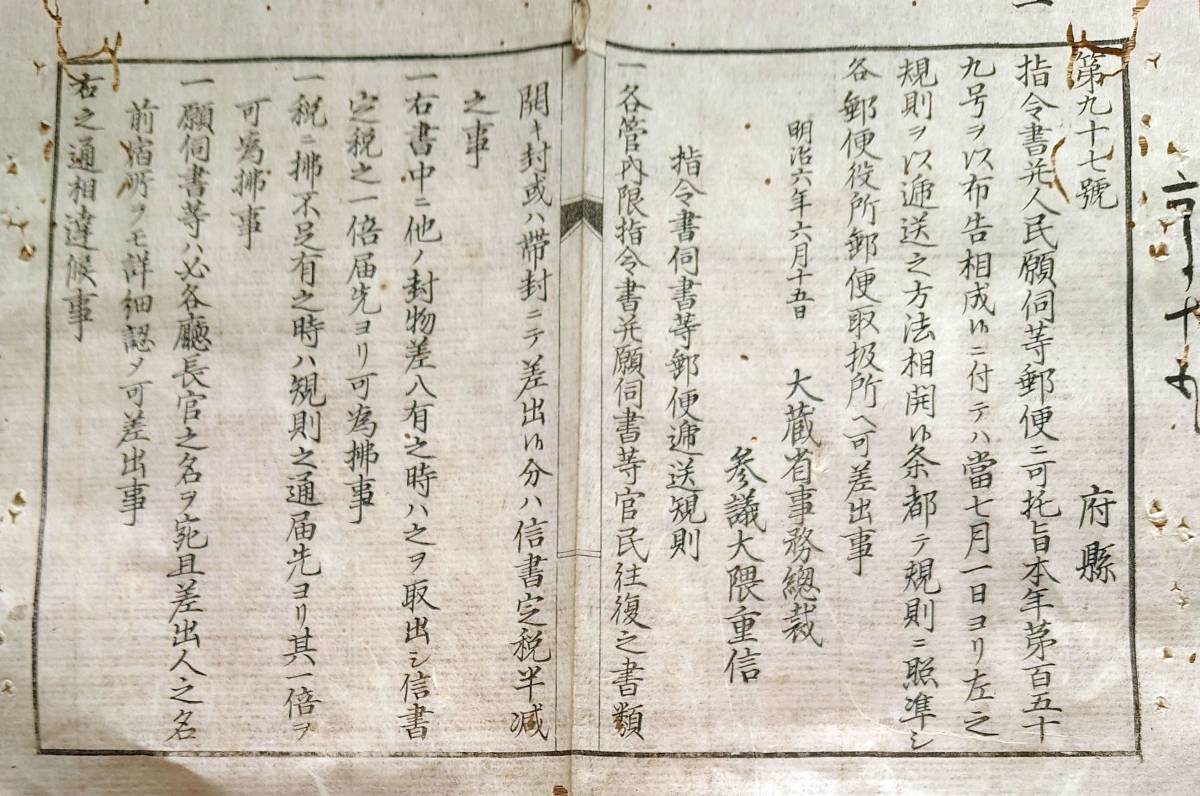 第九十七號
府縣
指令書幷人民願伺等郵便ニ可托旨本年第百五十
九号ヲ以布告相成候ニ付テハ當七月一日ヨリ左之
規則ヲ以逓送之方法相開候条都テ規則ニ照準シ
各郵便役所郵便取扱所ヘ可差出事
明治六年六月十五日 大蔵省事務總裁
参議大隈重信
指令書伺書等郵便逓送規則
一各管内限指令書幷願伺書等官民往復之書類
開キ封或ハ帶封ニテ差出候分ハ信書定税半減
之事
一右書中ニ他ノ封物差入有之時ハ之ヲ取出シ信書
定税之一倍届先ヨリ可為拂事
一税ニ拂不足有之時ハ規則之通届先ヨリ其一倍ヲ
可為拂事
一願伺書等ハ必各廳長官之名ヲ宛且差出人之名
前宿所ヲモ詳細認メ可差出事
右之通相達候事